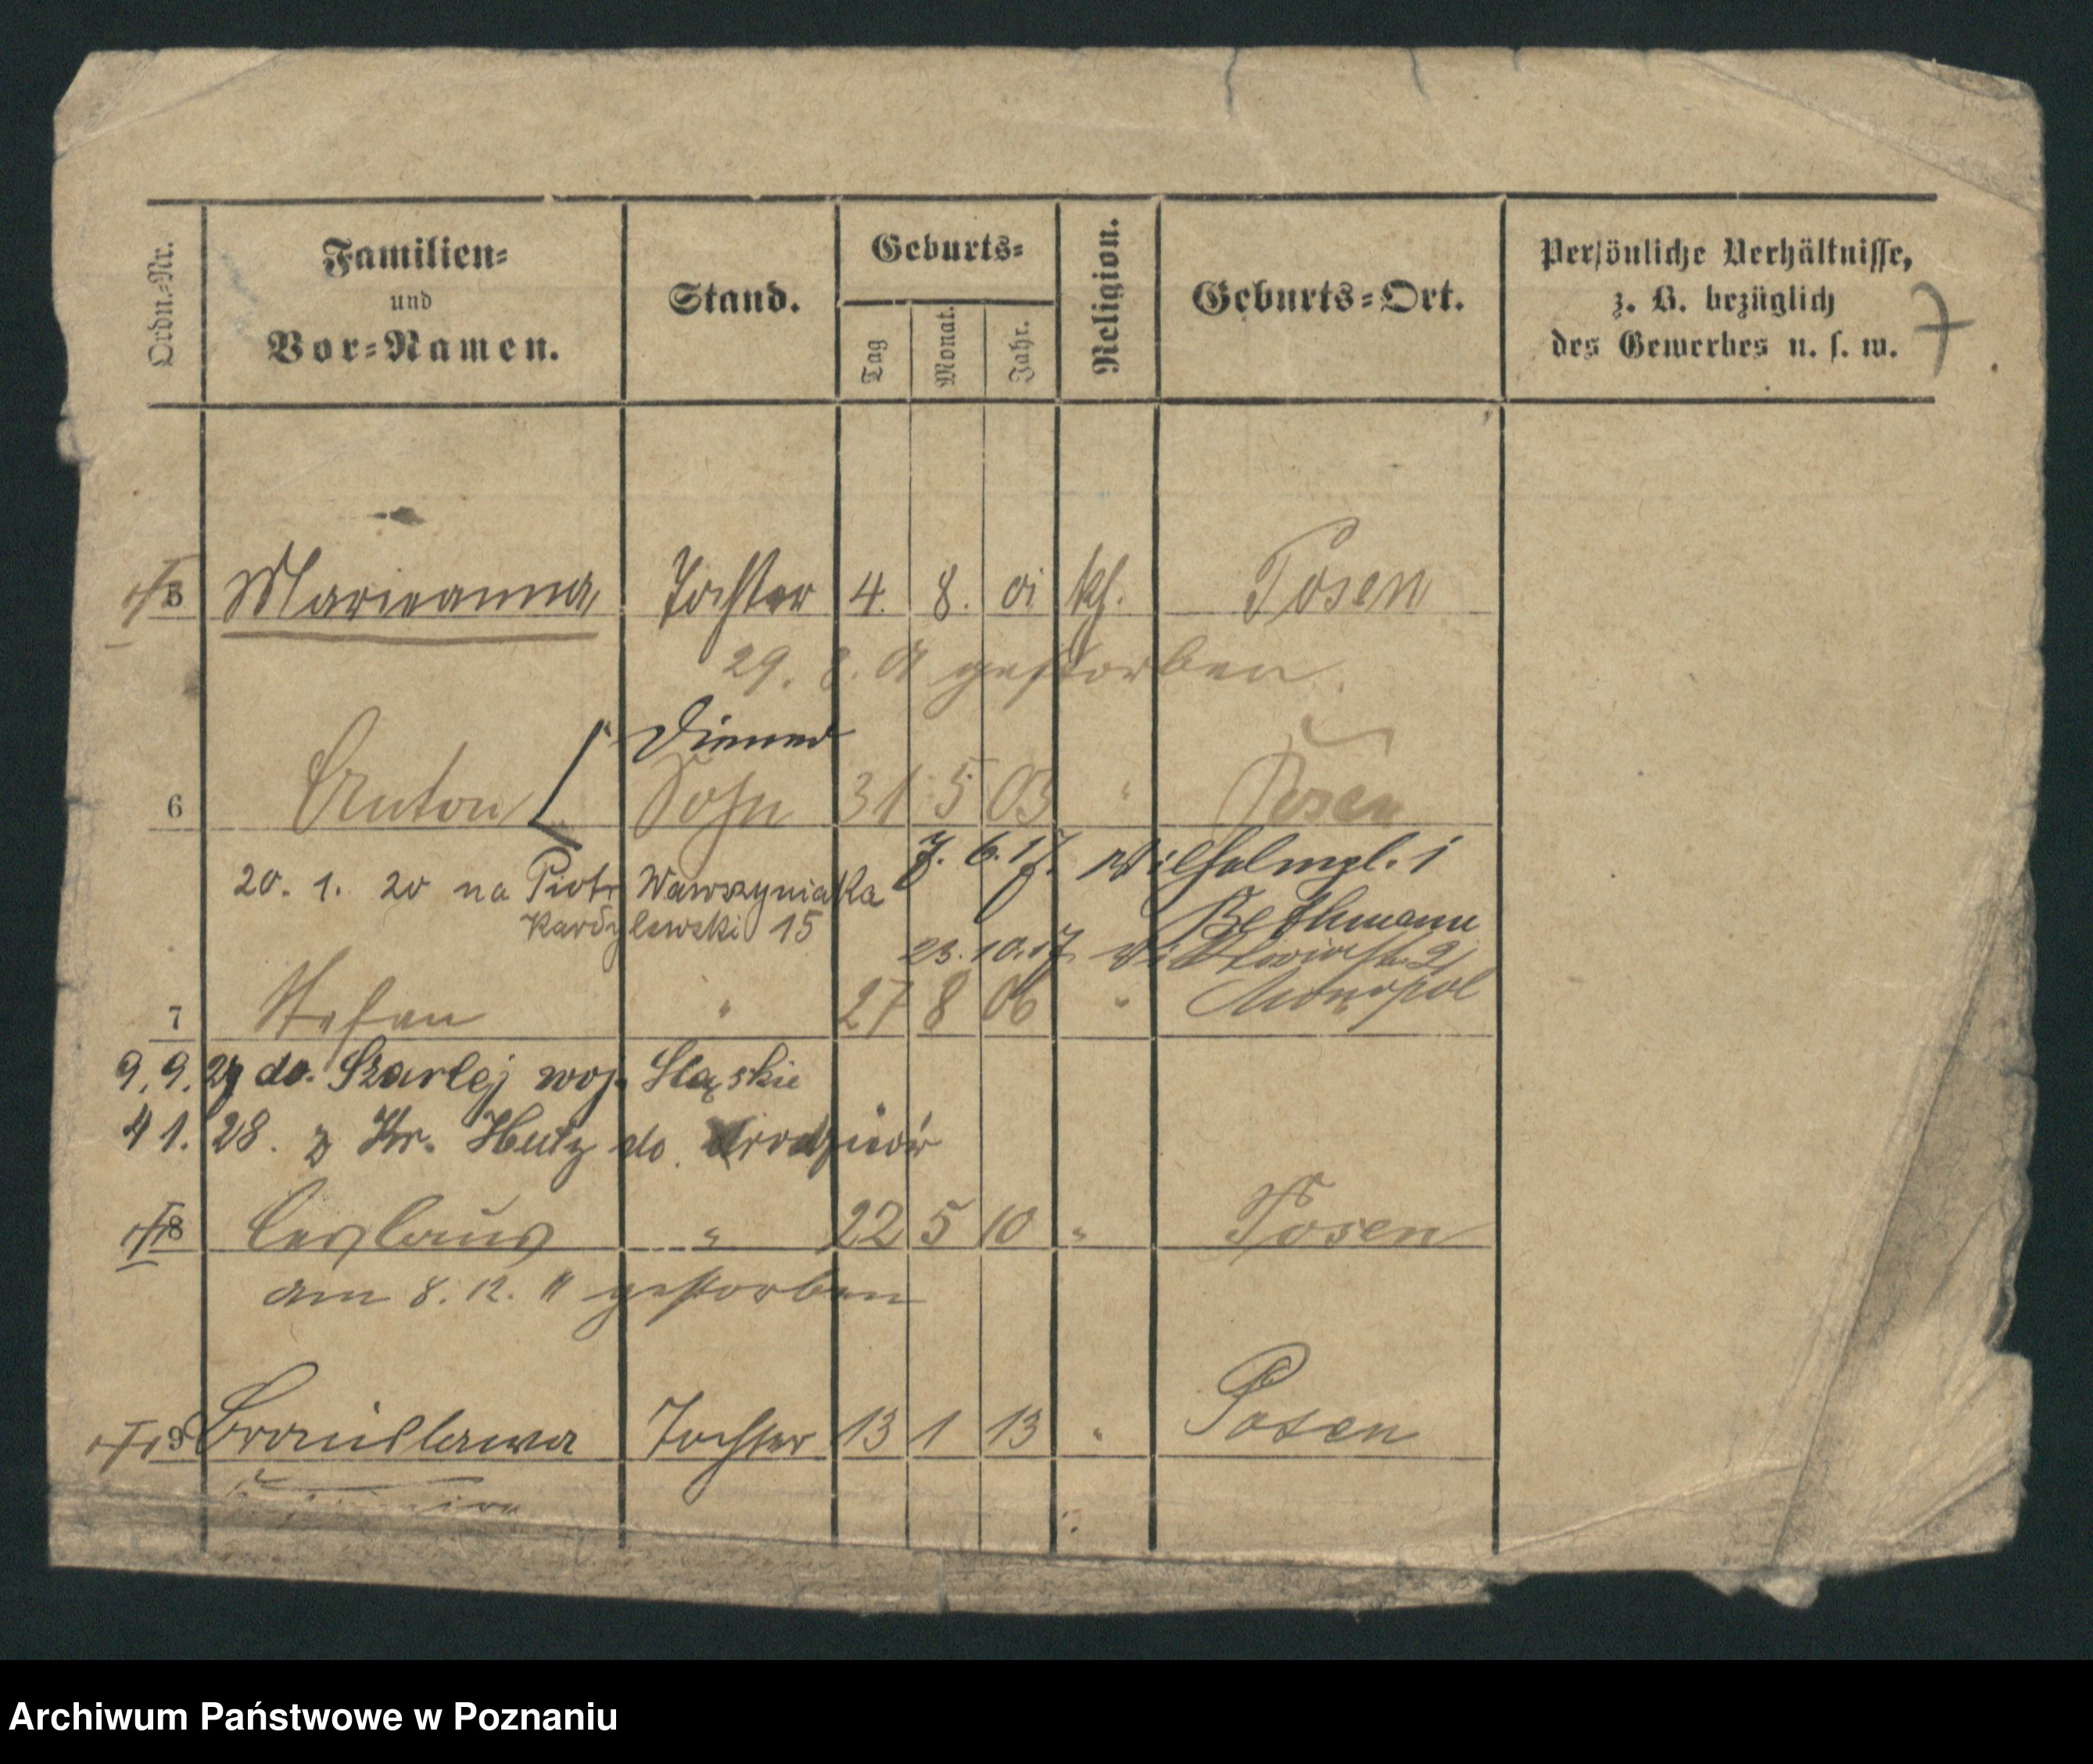 Ordn.-Nr. Familien- und Vor-Namen. Stand. Geburts- Tag Monat. Jahr. Religion. Geburts-Ort. Persönliche Verhältnisse, z. B. bezüglich des Gewerbes u. s. w. 7
5 Marieanna Tochter 4. 8. 01 kf. Posen
29. 8. 01 gestorben.
Diener
6 Anton Sohn 31 5 03 " Posen
7. 6. 17. Wilhelmpl. 1
20. 1. 20 na Piotr Wawrzyniaka
Bethmann
Kardylewski 15
23. 10. 17. Viktoriastr. 21
Monopol
7 Stefan " 27 8 06 "
9. 9. 27 do. Szarlej woj. Śląskie
4 1. 28. z Kr. Huty do
8 Ceslaus " 22 5 10 " Posen
am 8. 12. 11 gestorben
9 Bronislawa Tochter 13 1 13 " Posen
Archiwum Państwowe w Poznaniu